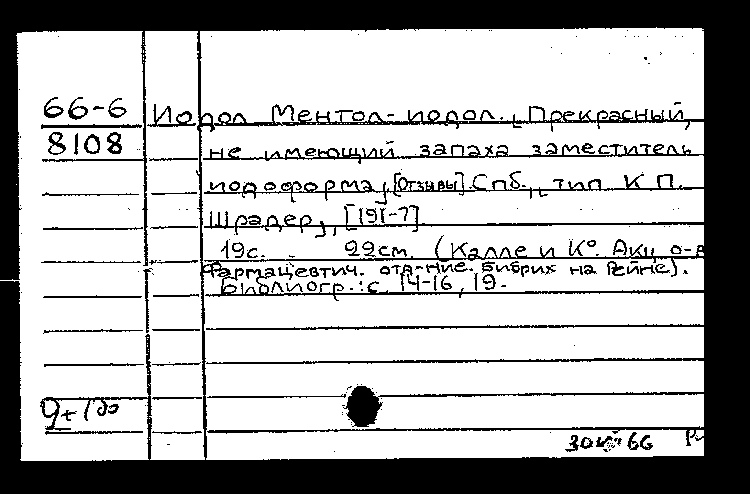 66-6 Иодол Ментол-иодол. [Прекрасный,
8108 не имеющий запаха заместитель
иодоформа], [Отзывы]. Спб., [тип К П.
Шрадер], [191-?]
19с. 22см. (Калле и К°. Акц о-в
Фармацевтич. отд-ние. Бибрих на Рейне).
Библиогр.: с. 14-16, 19.
66